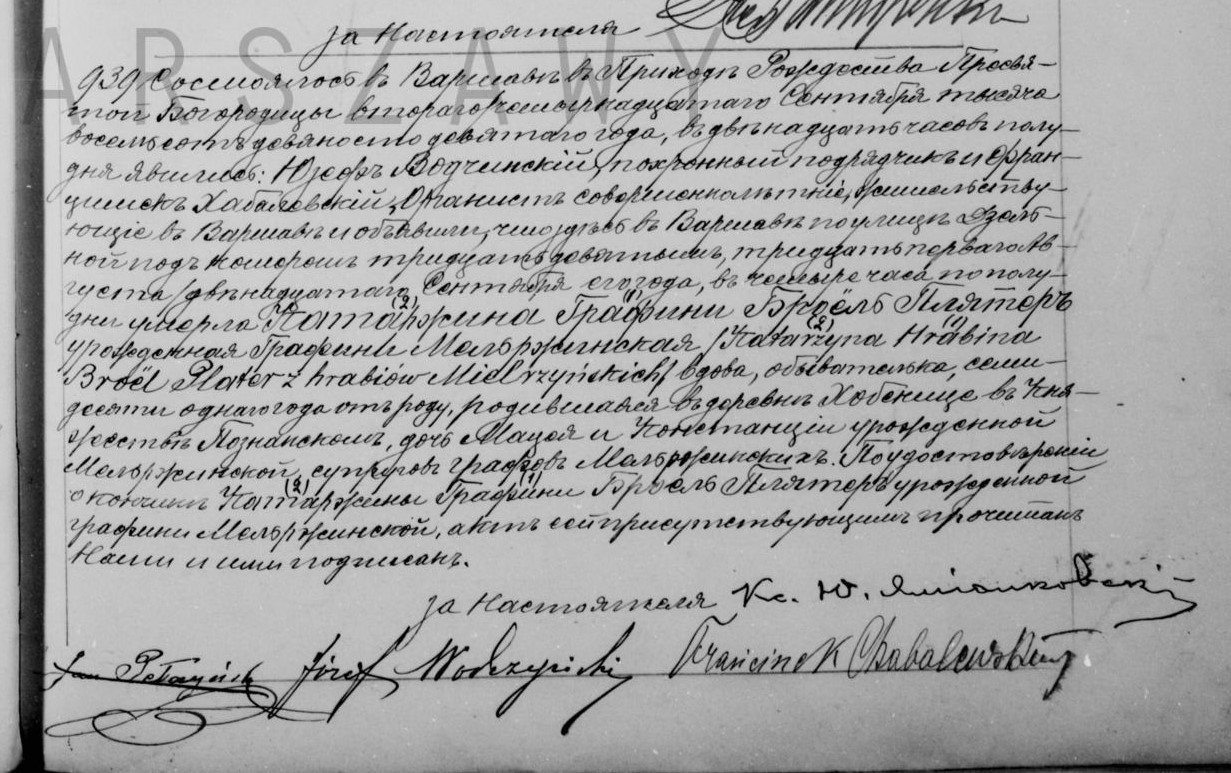 за Настоятеля
ARSZAWY
939 Состоялось въ Варшавѣ въ Приходѣ Рождества Пресвя-
той Богородицы второго/четырнадцатаго Сентября тысяча
восемьсотъ девяносто девятаго года, въ двѣнадцать часовъ полу-
дня явились: Юзефъ Водчинскій, похоронный подрядчикъ и Фран-
цишекъ Хабалевскій, Органистъ совершеннолѣтніе, жительству-
ющіе въ Варшавѣ и объявили, что здѣсь въ Варшавѣ по улицѣ Дзель-
ной подъ номеромъ тридцать девятымъ, тридцать перваго Ав-
густа /двѣнадцатаго Сентября сего года, въ четыре часа пополу-
дни умерла Катаржина (2) Графини (1) Броёль Плятеръ
урожденная Графини Мельржинская /Katarzyna (2) Hrabina (1)
Broël Plater z hrabiów Mielrzyńskich/ вдова, обывателька, семи-
десяти одного года отъ роду, родившаяся въ деревнѣ Хобенице въ Кня-
жествѣ Познанскомъ, дочь Мацея и Констанціи урожденной
Мельржинской, супруговъ графовъ Мельржинскихъ. По удостовѣреніи
о кончинѣ Катаржины (2) Графини (1) Броель Плятеръ урожденной
графини Мельржинской, актъ сей присутствующимъ прочитанъ
Нами и ими подписанъ.
за Настоятеля Кс. Ю.
Józef Wodczyński Franciszek Chabalewski